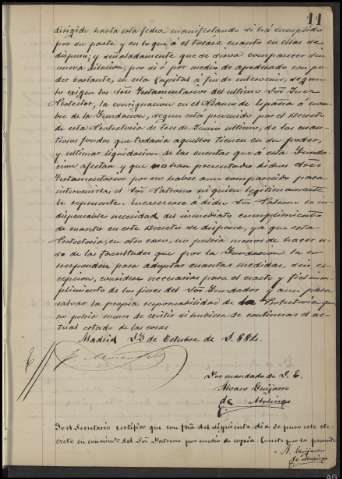 11
dirigido hasta esta fecha manifestando si ha cumplido
por su parte y en lo que á él tocare cuanto en ellas se
dispuso; y señaladamente que se sirva comparecer sin
nueva citacion, por sí ó por medio de apoderado con po-
der bastante, en esta Capital á fin de intervenir, segun
lo exigen los dos Testamentarios del ultimo Don Juez
Protector, la consignacion en el Banco de España á nom-
bre de la Fundacion, segun está prevenido por el Decreto
de esta Protectoría de de Junio ultimo, de los cuan-
tiosos fondos que todavia aquellos tienen en su poder,
y ultimar liquidacion de las cuentas que á esta Funda-
cion afectan y que no han presentado dichos Sres
Testamentarios por no haber aun comparecido para
intervenirla el Sor Patrono ni quien legitimamente
le represente. Encarezcase á dicho Sor Patrono la in-
dispensable necesidad del inmediato cumplimiento
de cuanto en este Decreto se dispone, ya que esta
Protectoria, en otro caso, no podria menos de hacer u-
so de las facultades que por la Fundacion la co-
rresponden para adoptar cuantas medidas, sin ex-
cepcion, considere necesarias para el exacto y fiel cum-
plimiento de los fines del Sor Fundador y aun para
salvar la propia responsabilidad de la Protectoria que
no podria menos de existir si hubiera de continuar el ac-
tual estado de las cosas
Madrid de Octubre de 1.884.
Por mandado de S. E.
Alvaro Quijano
de
Yo el Secretario certifico que con fha del siguiente dia se puso este de-
creto en conocimto del Sor Patrono por medio de copia. Conste por la presente
A. Quijano